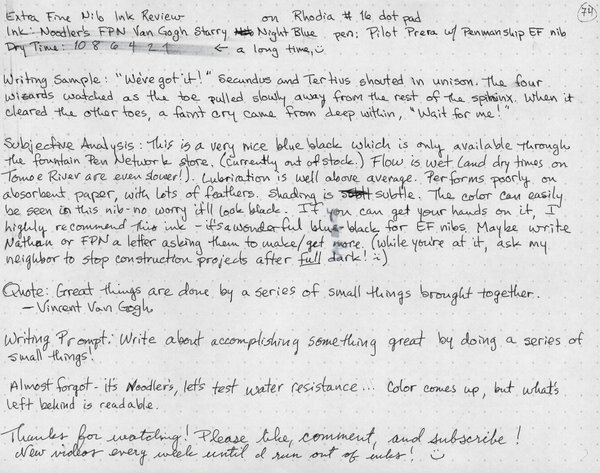 Extra Fine Nib Ink Review on Rhodia # 16 dot pad 74
Ink: Noodler's FPN Van Gogh Starry Night Blue pen: Pilot Prera w/ Penmanship EF nib
Dry Time: 10 8 6 4 2 1 ← a long time, :)
Writing Sample: "We've got it!" Secundus and Tertius shouted in unison. The four
wizards watched as the toe pulled slowly away from the rest of the sphinx. When it
cleared the other toes, a faint cry came from deep within, "Wait for me!"
Subjective Analysis: This is a very nice blue black which is only available through
the fountain Pen Network store. (Currently out of stock.) Flow is wet (and dry times on
Tomoe River are even slower!). Lubrication is well above average. Performs poorly on
absorbent paper, with lots of feathers. Shading is subtle. The color can easily
be seen in this nib - no worry it'll look black. If you can get your hands on it, I
highly recommend this ink - it's a wonderful blue-black for EF nibs. Maybe write
Nathan or FPN a letter asking them to make/get more. (While you're at it, ask my
neighbor to stop construction projects after full dark! :)
Quote: Great things are done by a series of small things brought together.
- Vincent Van Gogh
Writing Prompt: Write about accomplishing something great by doing a series of
small things!
Almost forgot - it's Noodler's, let's test water resistance... Color comes up, but what's
left behind is readable.
Thanks for watching! Please like, comment, and subscribe!
New videos every week until I run out of inks! :)